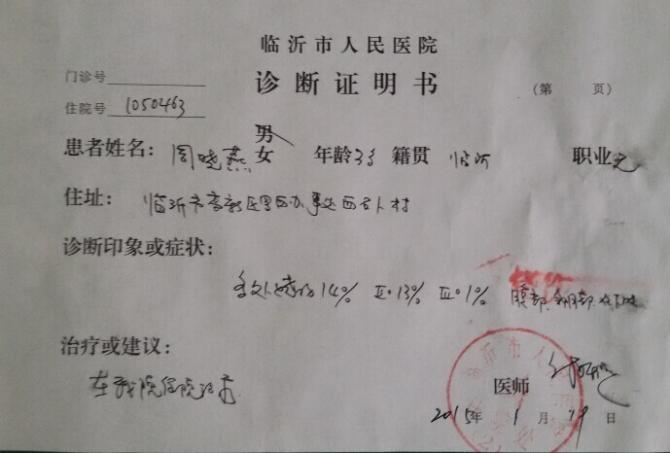 临沂市人民医院
诊断证明书
门诊号
住院号 1050463
(第 页)
患者姓名: 周晓燕 男 女 年龄 33 籍贯 临沂 职业 无
住址: 临沂市高新区
诊断印象或症状:
多处烧伤14% Ⅱ°13% Ⅲ°1% 腹部
治疗或建议:
在我院住院治疗
临沂市人民
医师
2015年 1月 19日